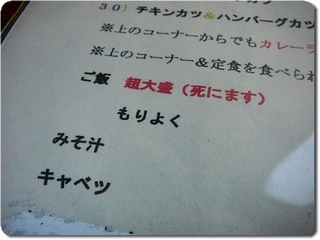 30）チキンカツ＆ハンバーグカツ
※上のコーナーからでもカレーラ
※上のコーナー＆定食を食べられ
ご飯　超大盛（死にます）
もりよく
みそ汁
キャベツ